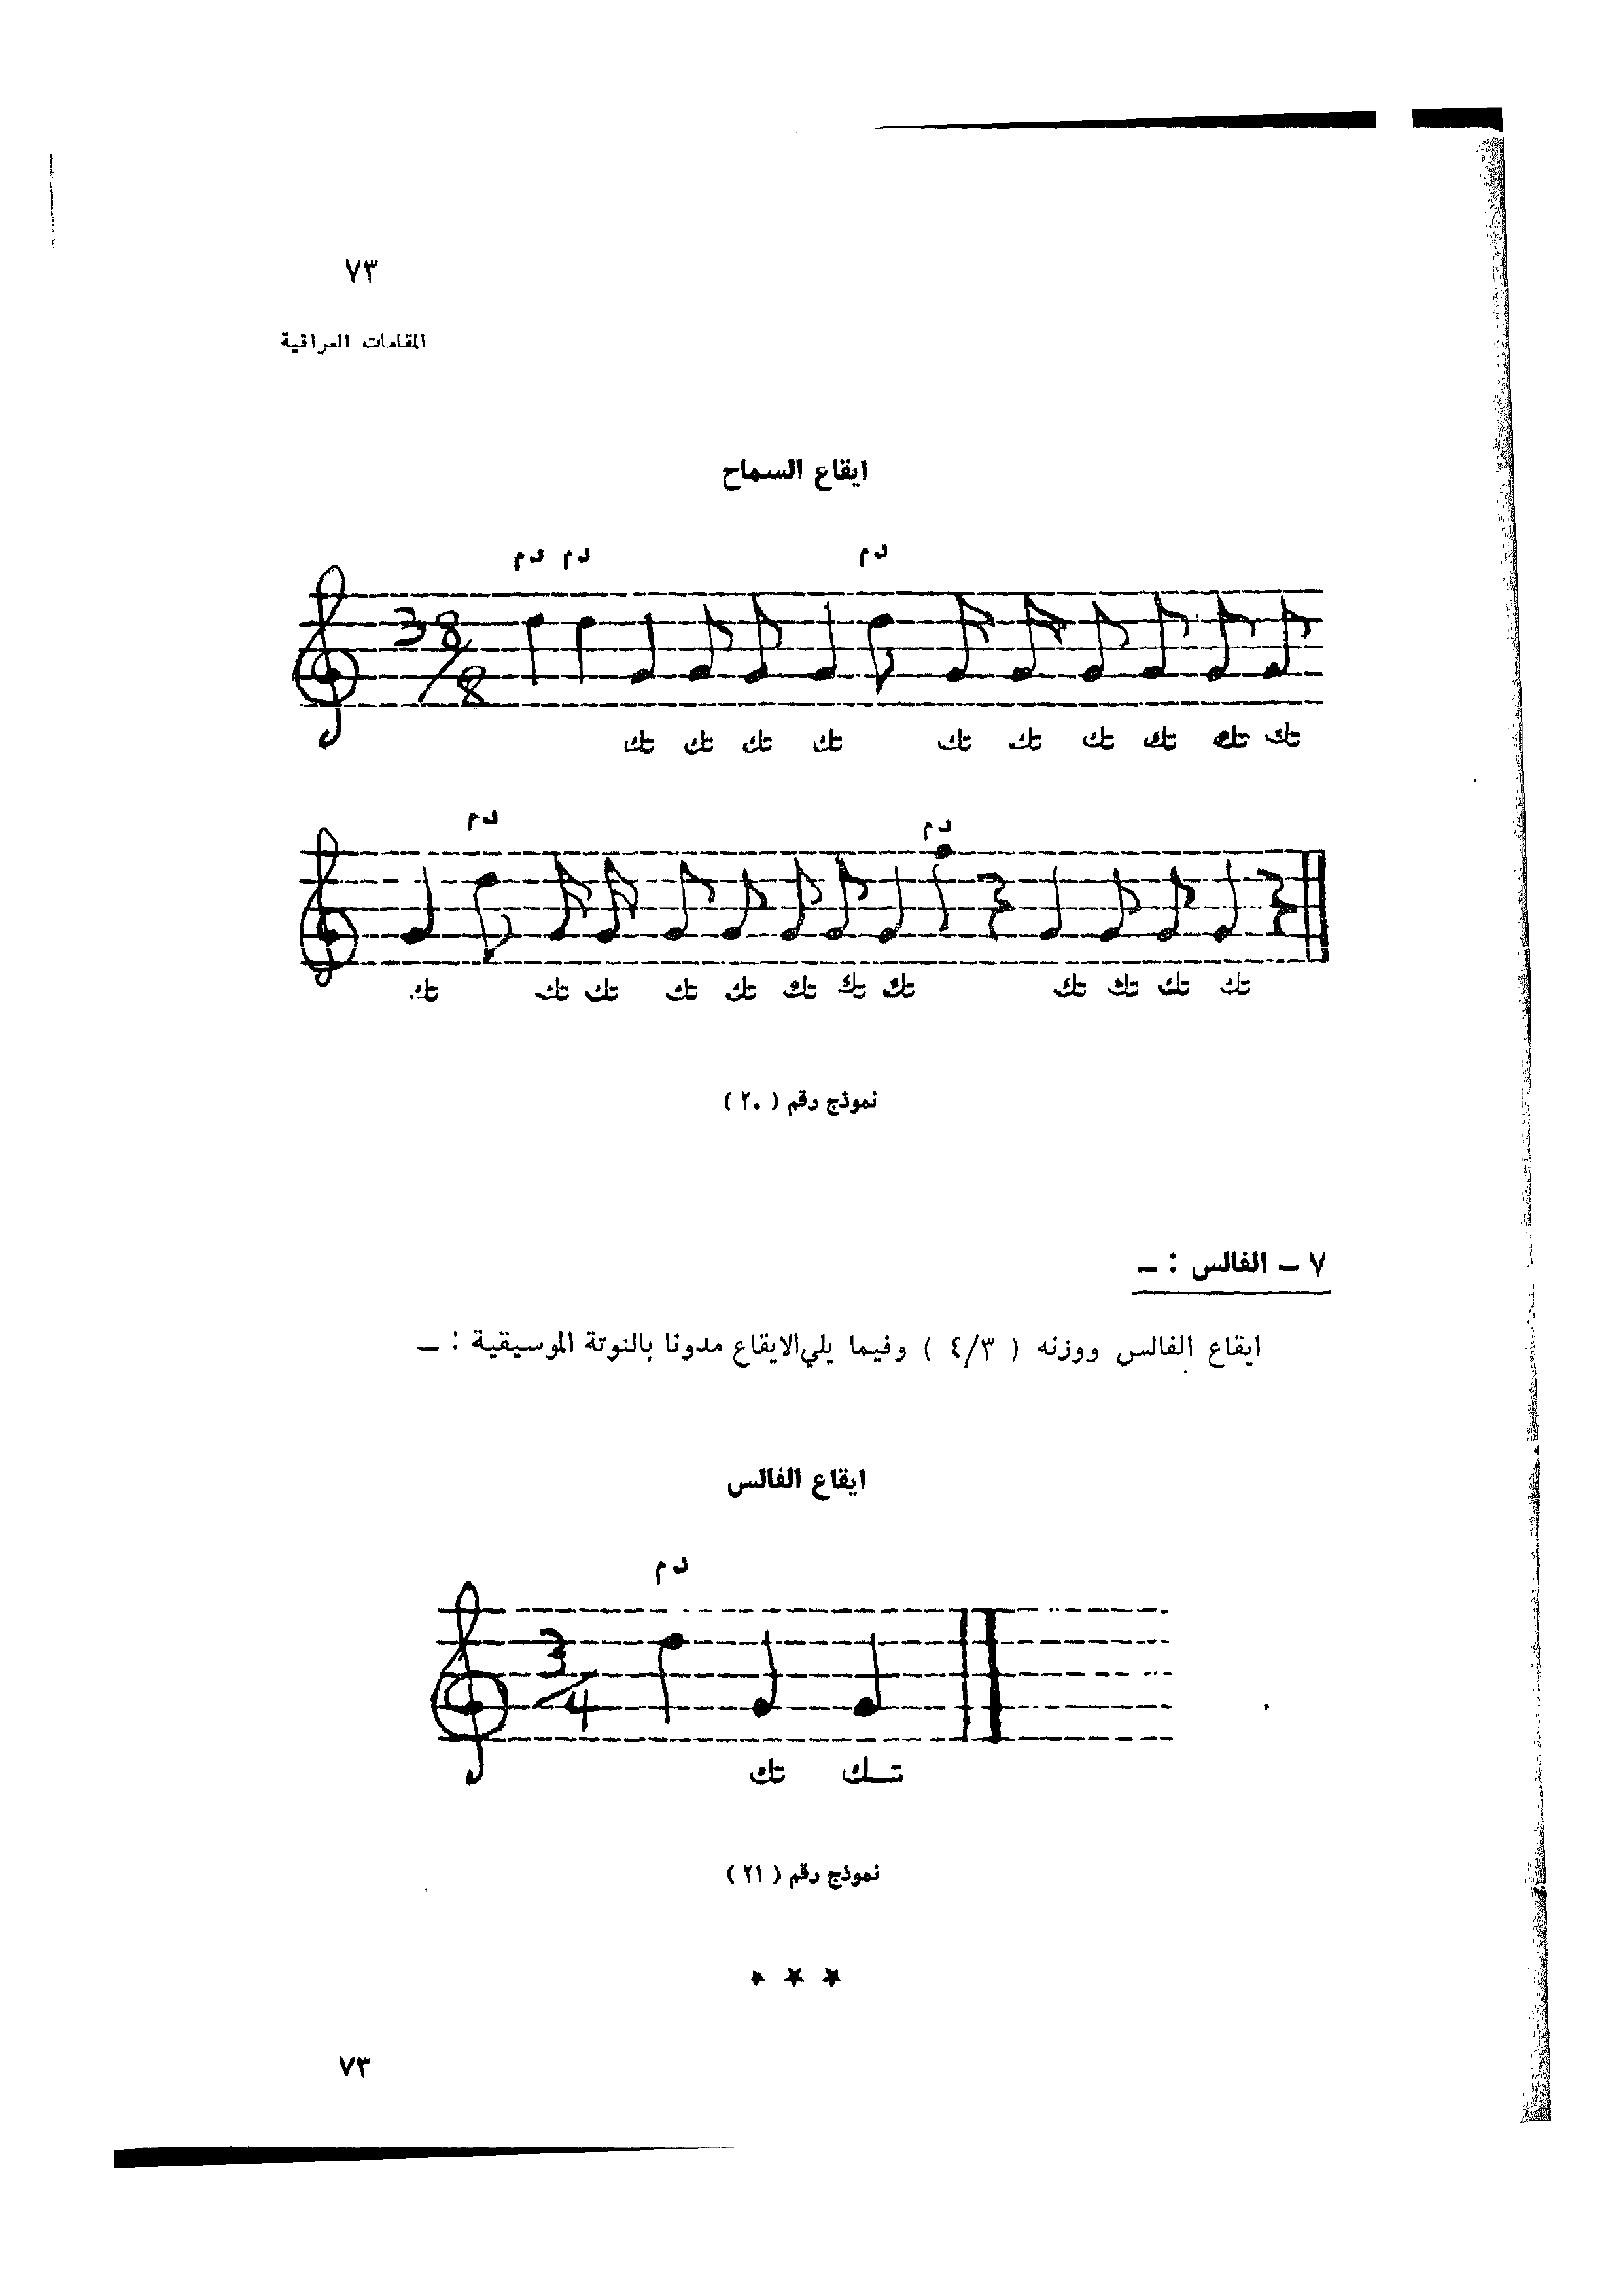 ٧٣
المقامات العراقية
ايقاع السماح
دم دم دم
38/8
تك تك تك تك تك تك تك تك تك تك
دم دم
تك تك تك تك تك تك تك تك تك تك تك تك
نموذج رقم ( ٢٠ )
٧ – الفالس : –
ايقاع الفالس ووزنه ( ٤/٣ ) وفيما يلي الايقاع مدونا بالنوتة الموسيقية : –
ايقاع الفالس
دم
3/4
تك تــك
نموذج رقم ( ٢١ )
٧٣